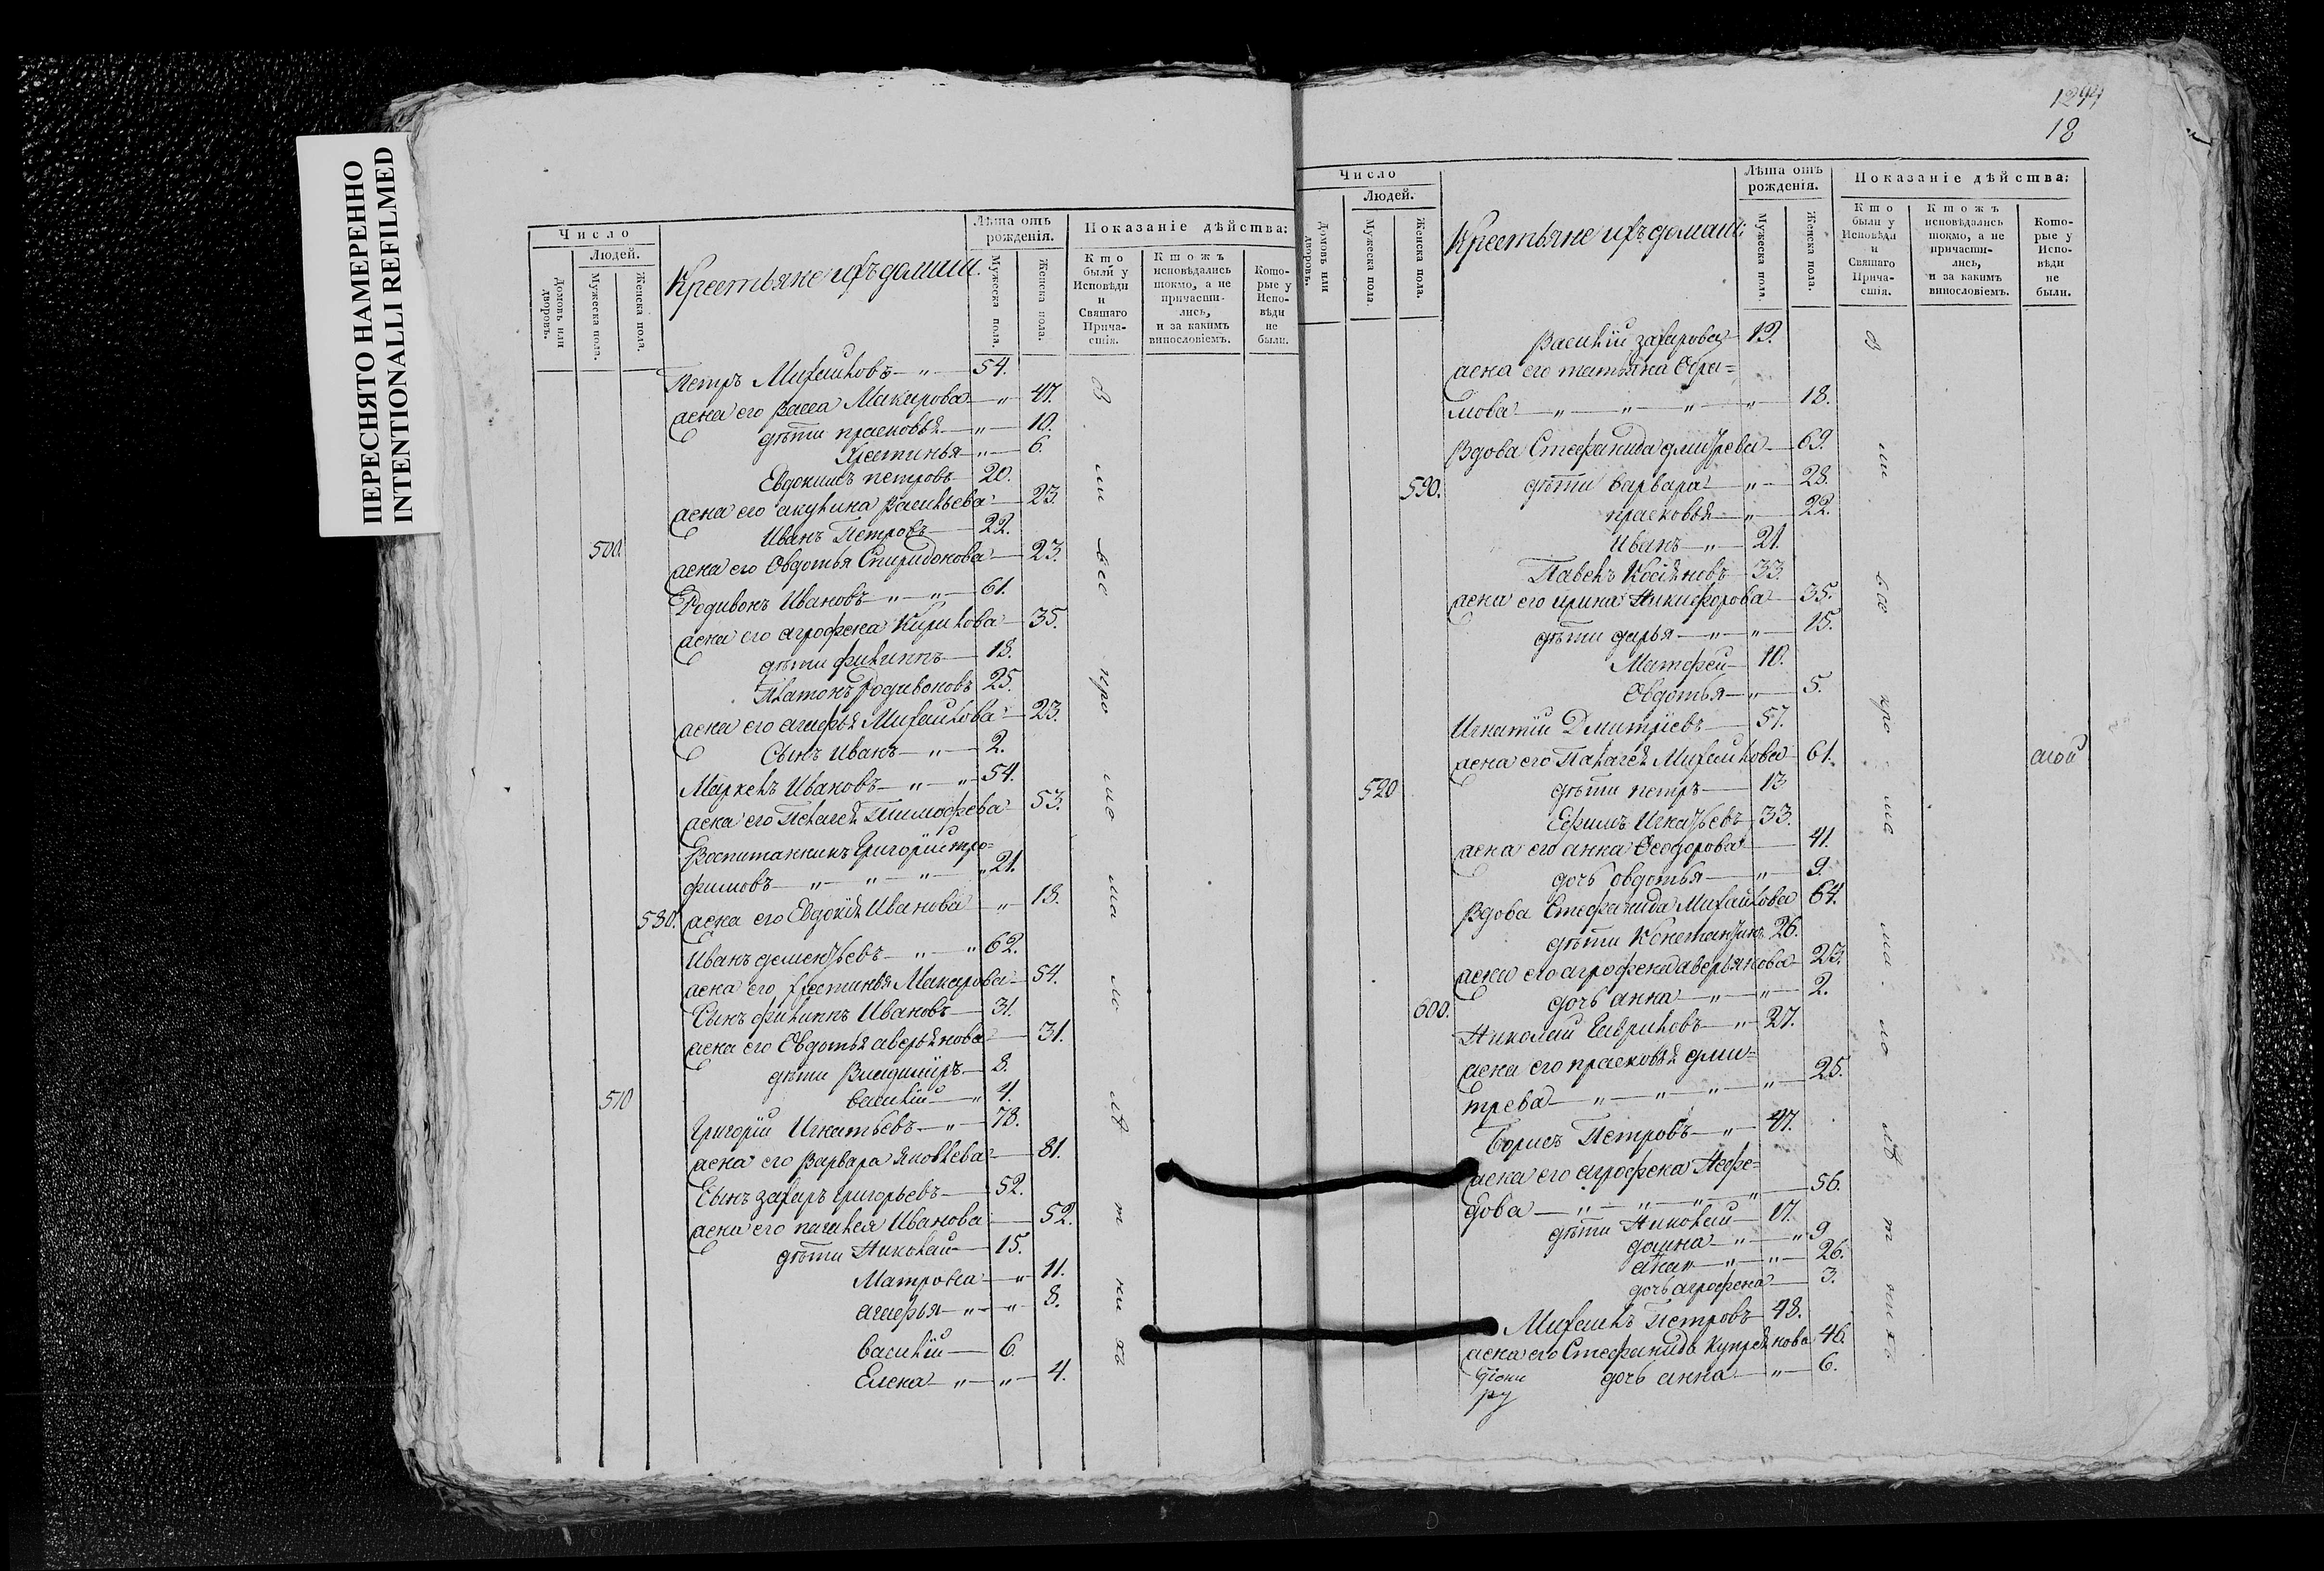 ПЕРЕСНЯТО НАМЕРЕННО
INTENTIONALLI REFILMED
Число
Людей.
Домовъ или дворовъ.
Мужеска пола.
Женска пола.
Крестьяне ихъ домаш:
Лѣта отъ рожденія.
Мужеска пола.
Женска пола.
Показаніе дѣйства:
Кто были у Исповѣди и Святаго Прича- стія.
Ктожъ исповѣдались токмо, а не причасти- лись, и за какимъ винословіемъ.
Кото- рые у Испо- вѣди не были.
Петръ Михайловъ — 54.
жена его Васса Макарова — 47.
дѣти прасковья — 10.
Хрестинья — 6.
Евдокимъ петровъ 20.
жена его акулина Васильева 23.
Иванъ Петровъ 22.
500. жена его Овдотья Спиридонова 23.
Родивонъ Ивановъ — 61.
жена его агрофена Кирилова 35.
дѣти филиппъ 18.
Платонъ Родивоновъ 25.
жена его агафья Михайлова 23.
Сынъ Иванъ — 2.
Маркелъ Ивановъ — 54.
жена его Пелагея Тимофева 53.
Воспитанникъ Григорій тро=
фимовъ — 21.
580. жена его Евдокія Иванова — 18.
Иванъ дементьевъ — 62.
жена его хрестинья Макарова 54.
Сынъ филиппъ Ивановъ 31.
жена его Овдотья аверьянова 31.
дѣти Владимиръ 8.
510 василій — 4.
Григорій Игнатьевъ — 78.
жена его Варвара яковлева 81.
Сынъ захаръ григорьевъ 52.
жена его палагея Иванова 52.
дѣти Николай 15.
Матрона — 11.
агафья — 8.
василій — 6
Елена — 4.
1294
18
Число
Людей.
Домовъ или дворовъ.
Мужеска пола.
Женска пола.
Крестьяне ихъ домаш:
Лѣта отъ рожденія.
Мужеска пола.
Женска пола.
Показаніе дѣйства:
Кто были у Исповѣди и Святаго Прича- стія.
Ктожъ исповѣдались токмо, а не причасти- лись, и за какимъ винословіемъ.
Кото- рые у Испо- вѣди не были.
Василій захаровъ 19.
жена его татьяна Ефи=
мова — 18.
Вдова Стефанида дмитрева 69.
590. дѣти варвара — 28.
прасковья — 22.
Иванъ — 21.
Павелъ Косьяновъ 33.
жена его ирина Никифорова 35.
дѣти дарья — 15.
Матфей 10.
Овдотья — 5.
Игнатій Дмитріевъ 57.
жена его Палагея Михайлова 61.
520 дѣти петръ 13
Ефимъ Игнатьевъ 33.
жена его анна Феодорова 41.
дочь овдотья — 9.
Вдова Стефанида Михайлова 64.
дѣти Константинъ 26.
жена его агрофена аверьянова 23.
600. дочь анна — 2.
Николай Гавриловъ — 27.
жена его прасковья дми=
трева — 25.
Борисъ Петровъ — 47.
жена его агрофена Нефе=
дова — 56.
дѣти Николай 17.
домна — 9
— 26.
дочь агрофена 3.
Михайлъ Петровъ 48.
жена его Стефанида Купреянова 46.
дочь анна — 6.
ру